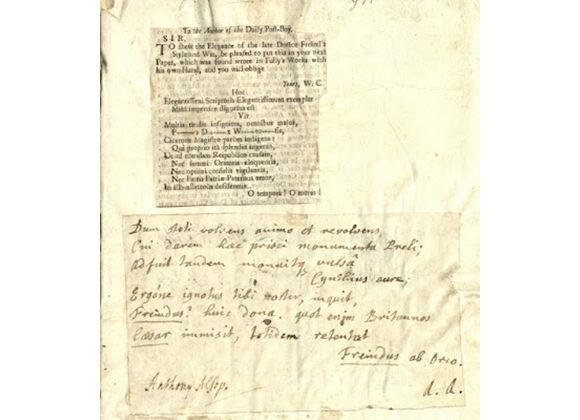 To the Author of the Daily Post-Boy.
SIR,
TO shew the Elegance of the late Doctor Freind's
Style and Wit, be pleased to put this in your next
Paper, which was found wrote in Tully's Works with
his own Hand, and you will oblige
Yours, W. C.
Hoc
Elegantissimi Scriptoris Elegantissimum exemplar
Mihi impertire dignatus est
Vir
Multis titulis insignitus, omnibus major,
F———s D———s W———
Cicerone Magistro parum indigens:
Qui proprio ita splendet ingenio,
Ut nil
Nec summi Oratoris eloquentia,
Nec optimi consulis vigilantia,
Nec Patris Patriæ Paternus amor,
In illo desideretur.
O tempora! O mores!
Dum steti volvens animo et revolvens
Cui darem hæc prisci monumenta Preli;
adfuit tandem monditq vulsâ
Cynthius aure;
Ergóne ignotus tibi noster, inquit,
Freindus? huic dona. quot enim Britannos
Cæsar immisit, totidem retentat
Freindus ab Orco.
A. A.
Anthony Alsop.